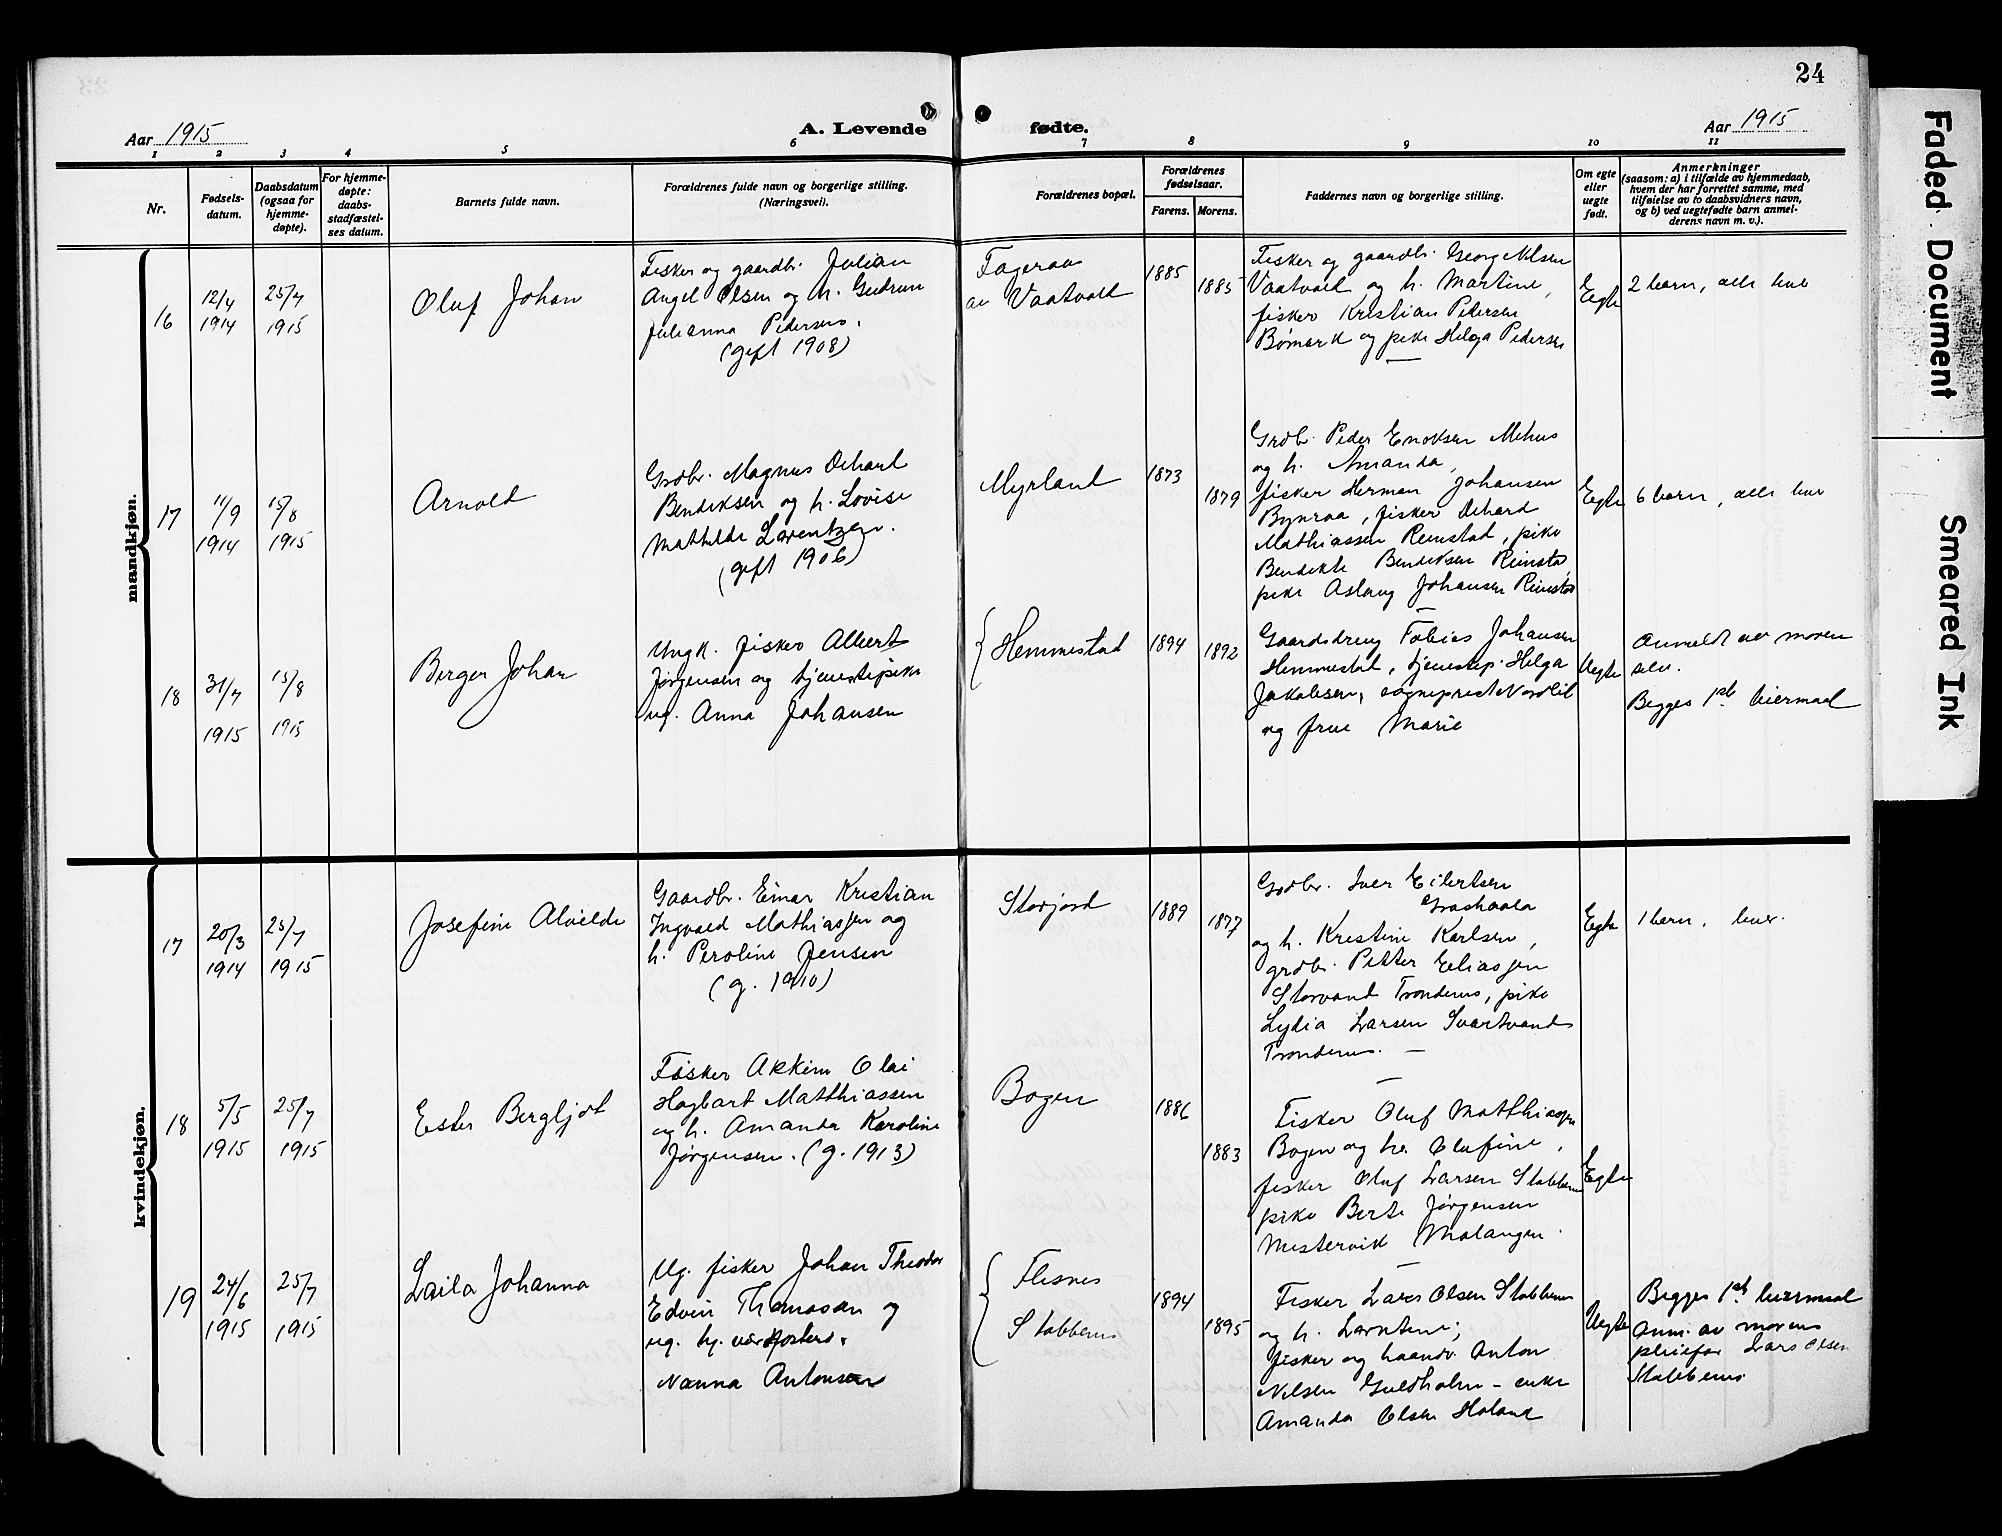 24
Aar 1915
A. Levende
fødte.
Aar 1915
1 2 3 4 5 6 7 8 9 10 11
Nr.
Fødsels-
datum.
Daabsdatum
(ogsaa for
hjemme-
døpte).
For hjemme-
døpte:
daabs-
stadfæstel-
ses datum.
Barnets fulde navn.
Forældrenes fulde navn og borgerlige stilling.
(Næringsvei).
Forældrenes bopæl.
Forældrenes
fødselsaar.
Farens. Morens.
Faddernes navn og borgerlige stilling.
Om egte
eller
uegte
født.
Anmerkninger
(saasom: a) i tilfælde av hjemmedaab,
hvem der har forrettet samme, med
tilføielse av to daabsvidners navn,
og b) ved uegtefødte barn anmel-
derens navn m. v.).
mandkjøn.
16
12/4
1914
25/7
1915
Oluf Johan
Fisker og gaardbr. Julian
Angel Olsen og h. Gudrun
Julianna Pedersen.
(gift 1908)
Fageraas
av Vaatvold
1885
1885
Fisker og gaardbr. Georg Olsen
Vaatvold og h. Martine,
fisker Kristian Pedersen
Bømark og pike Helga Pedersen
Egte
2 barn, alle lever
17
11/9
1914
15/8
1915
Arnold
Grdbr. Magnus Dehard
Bendiksen og h. Lovise
Mathilde Lorentzen.
(gift 1906)
Myrland
1873
1879
Grdbr. Peder Enoksen Mehus
og h. Amanda,
fisker Herman Johansen
Bynraa, fisker Dehard
Mathiassen Reinstad, pike
Bendikte Bendiksen Reinsta
pike Aslaug Johansen Reinstad
Egte
6 barn, alle lever
18
31/7
1915
15/8
1915
Birger Johan
Ungk. fisker Albert
Jørgensen og tjenestepike
ug. Anna Johansen
Hemmestad
1894
1892
Gaardsdreng Tobias Johansen
Hemmestad, tjenestep. Helga
Jakobsen, sogneprest Nordlid
og frue Marie
Uegte
Anmeldt av moren
selv.
Begges 1ste leiermaal
kvindekjøn.
17
20/3
1914
25/7
1915
Josefine Alvilde
Gaardbr. Einar Kristian
Ingvald Mathiassen og
h. Peroline Jensen
(g. 1910)
Storjord
1889
1877
Grdbr. Iver Eilertsen
og h. Kristine Karlsen,
grdbr. Petter Eliassen
Storvand Trondenes, pike
Lydia Larsen Svartvand
Trondenes. —
Egte
1 barn, lever.
18
5/5
1915
25/7
1915
Ester Bergljot
Fisker Akkim Olai
Hagbart Matthiassen
og h. Amanda Karoline
Jørgensen. (g. 1913)
Bogen
1886
1883
Fisker Oluf Matthiassen
Bogen og h. Olufine,
fisker Oluf Larsen Stobbenes
pike Berte Jørgensen
Mestervik Malangen.
Egte
19
24/6
1915
25/7
1915
Laila Johanna
Ug. fisker Johan Theodor
Edvin Thomassen og
Nanna Antonsen
Flesnes
Stobbenes
1894
1895
Fisker Lars Olsen Stobbenes
og h. Larntine;
fisker og haandv. Anton
Nilsen Guldholm – enke
Amanda Olsen Holand
Uegte
Begges 1ste leiermaal
Anm. av morens
pleiefar Lars Olsen
Stobbenes
Faded Document
Smeared Ink